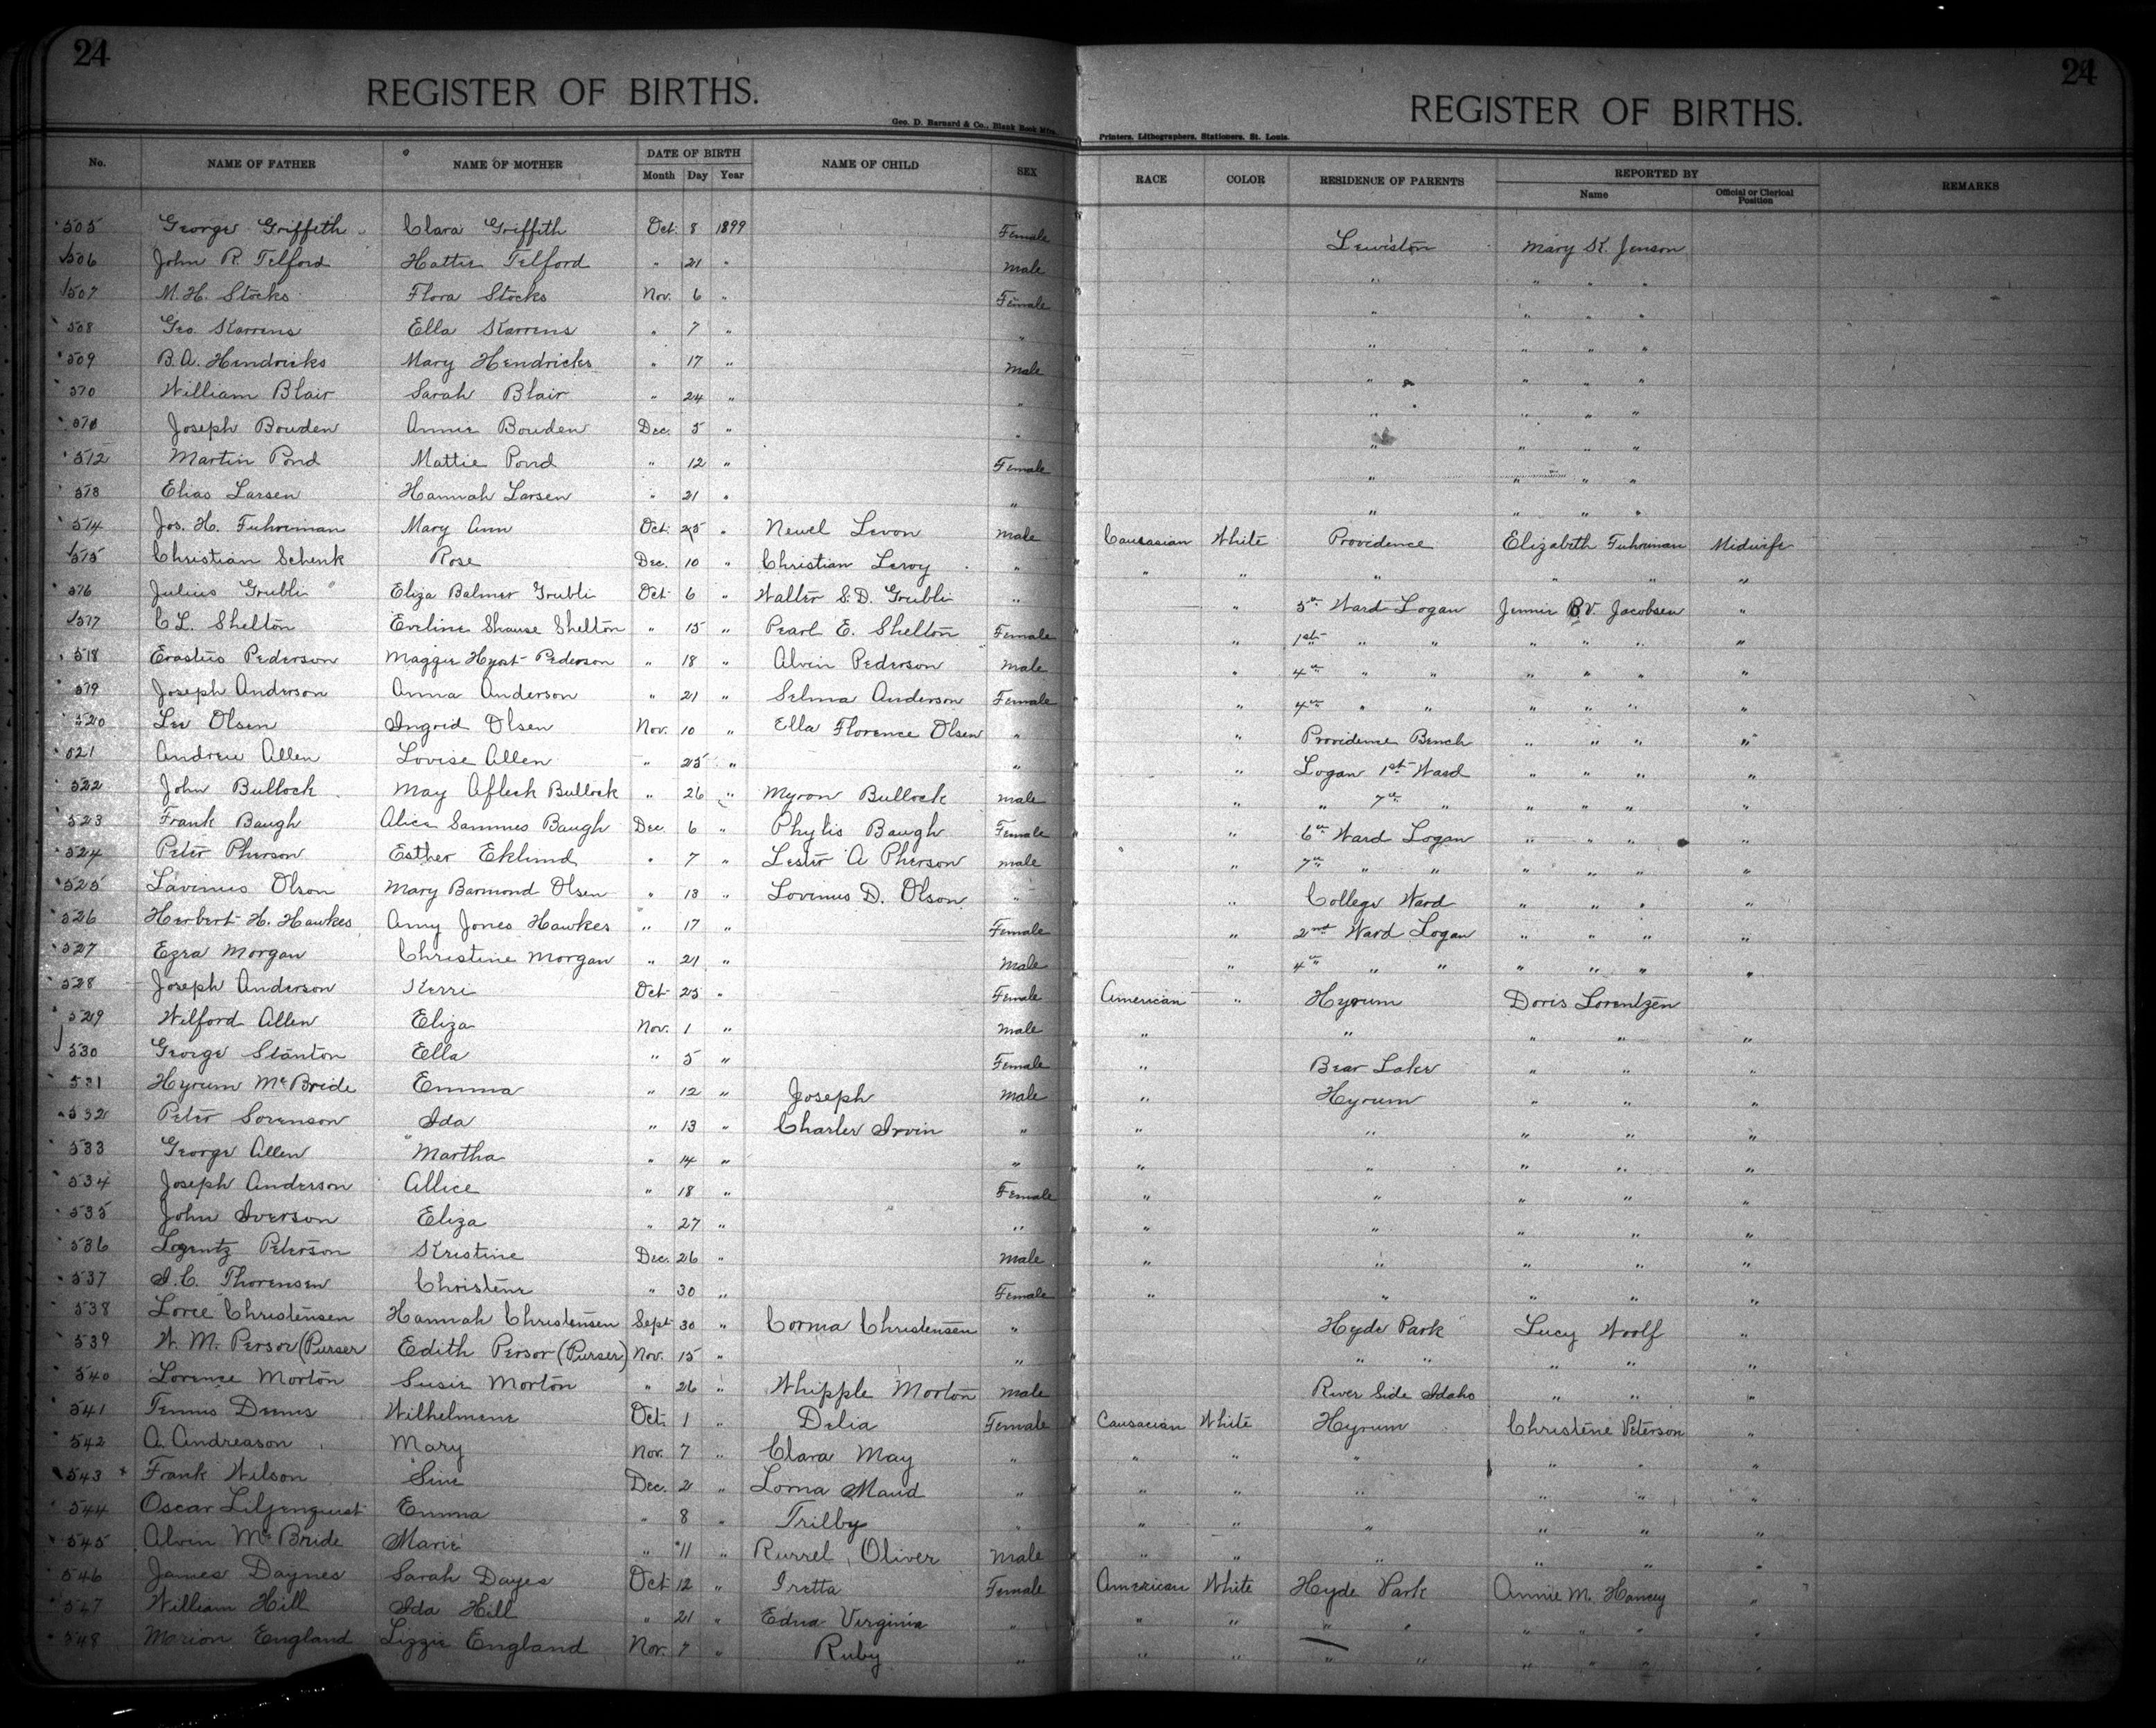 24
REGISTER OF BIRTHS.
Geo. D. Barnard & Co., Blank Book Mfrs.
24
REGISTER OF BIRTHS.
Printers, Lithographers, Stationers, St. Louis.
No. NAME OF FATHER NAME OF MOTHER DATE OF BIRTH Month Day Year NAME OF CHILD SEX RACE COLOR RESIDENCE OF PARENTS REPORTED BY Name Official or Clerical Position REMARKS
505 George Griffeth Clara Griffeth Oct. 8 1899 Female Lewiston Mary K. Jenson
506 John R. Telford Hattie Telford " 21 " Male " " " "
507 M. H. Stocks Flora Stocks Nov. 6 " Female " " " "
508 Geo. Karrens Ella Karrens " 7 " " " " " "
509 B. A. Hendricks Mary Hendricks " 17 " Male " " " "
510 William Blair Sarah Blair " 24 " " " " " "
511 Joseph Bowden Annie Bowden Dec. 5 " " " " " "
512 Martin Pond Mattie Pond " 12 " Female " " " "
513 Elias Larsen Hannah Larsen " 21 " " " " " "
514 Jos. H. Fuhreiman Mary Ann Oct. 25 " Newel Levon Male Caucasian White Providence Elizabeth Fuhriman Midwife
515 Christian Schenk Rose Dec. 10 " Christian Leroy " " " " " " "
516 Julius Grubli Eliza Balmer Grubli Oct. 6 " Walter S. D. Grubli " " 5th Ward Logan Jennie B V. Jacobsen "
517 C L. Shelton Eveline Shause Shelton " 15 " Pearl E. Shelton Female " 1st " " " " " "
518 Erastus Pederson Maggie Hyost Pederson " 18 " Alvin Pederson Male " 4th " " " " " "
519 Joseph Anderson Anna Anderson " 21 " Selma Anderson Female " 4th " " " " " "
520 Lee Olsen Ingrid Olsen Nov. 10 " Ella Florence Olsen " " Providence Bench " " " "
521 Andrew Allen Lovise Allen " 25 " " " Logan 1st Ward " " " "
522 John Bullock May Afleck Bullock " 26 " Myron Bullock Male " " 7th " " " " "
523 Frank Baugh Alice Sammes Baugh Dec. 6 " Phylis Baugh Female " 6th Ward Logan " " " "
524 Peter Pherson Esther Eklund " 7 " Lester A Pherson Male " 7th " " " " " "
525 Lavinus Olson Mary Barmond Olsen " 13 " Lovinus D. Olson " " College Ward " " " "
526 Herbert H. Hawkes Amy Jones Hawkes " 17 " Female " 2nd Ward Logan " " " "
527 Ezra Morgan Christine Morgan " 21 " Male " 4th " " " " " "
528 Joseph Anderson Kerri Oct. 25 " Female American " Hyrum Doris Lorentzen
529 Wilford Allen Eliza Nov. 1 " Male " " " " "
530 George Stanton Ella " 5 " Female " Bear Lake " " "
531 Hyrum McBride Emma " 12 " Joseph Male " Hyrum " " "
532 Peter Sorenson Ida " 13 " Charles Irvin " " " " " "
533 George Allen Martha " 14 " " " " " " "
534 Joseph Anderson Allice " 18 " Female " " " " "
535 John Iverson Eliza " 27 " " " " " " "
536 Logentz Peterson Kristine Dec. 26 " Male " " " " "
537 I. C. Thorensen Christene " 30 " Female " " " " "
538 Loree Christensen Hannah Christensen Sept 30 " Corma Christensen " Hyde Park Lucy Woolf "
539 W. M. Persor (Purser Edith Persor (Purser) Nov. 15 " " " " " " "
540 Lorence Morton Susie Morton " 26 " Whipple Morton Male River Side Idaho " " "
541 Tennis Dennis Wilhelmene Oct. 1 " Delia Female Caucasian White Hyrum Christene Peterson "
542 A. Andreason Mary Nov. 7 " Clara May " " " " " " "
543 Frank Wilson Sine Dec. 2 " Lorna Maud " " " " " " "
544 Oscar Liljenquist Emma " 8 " Trilby " " " " " " "
545 Alvin McBride Marie " 11 " Rurrel Oliver Male " " " " " "
546 James Daynes Sarah Dayes Oct. 12 " Iretta Female American White Hyde Park Annie M. Hancey "
547 William Hill Ida Hill " 21 " Edna Virginia " " " " " " " " "
548 Marion England Lizzie England Nov. 7 " Ruby " " " " " " " " "